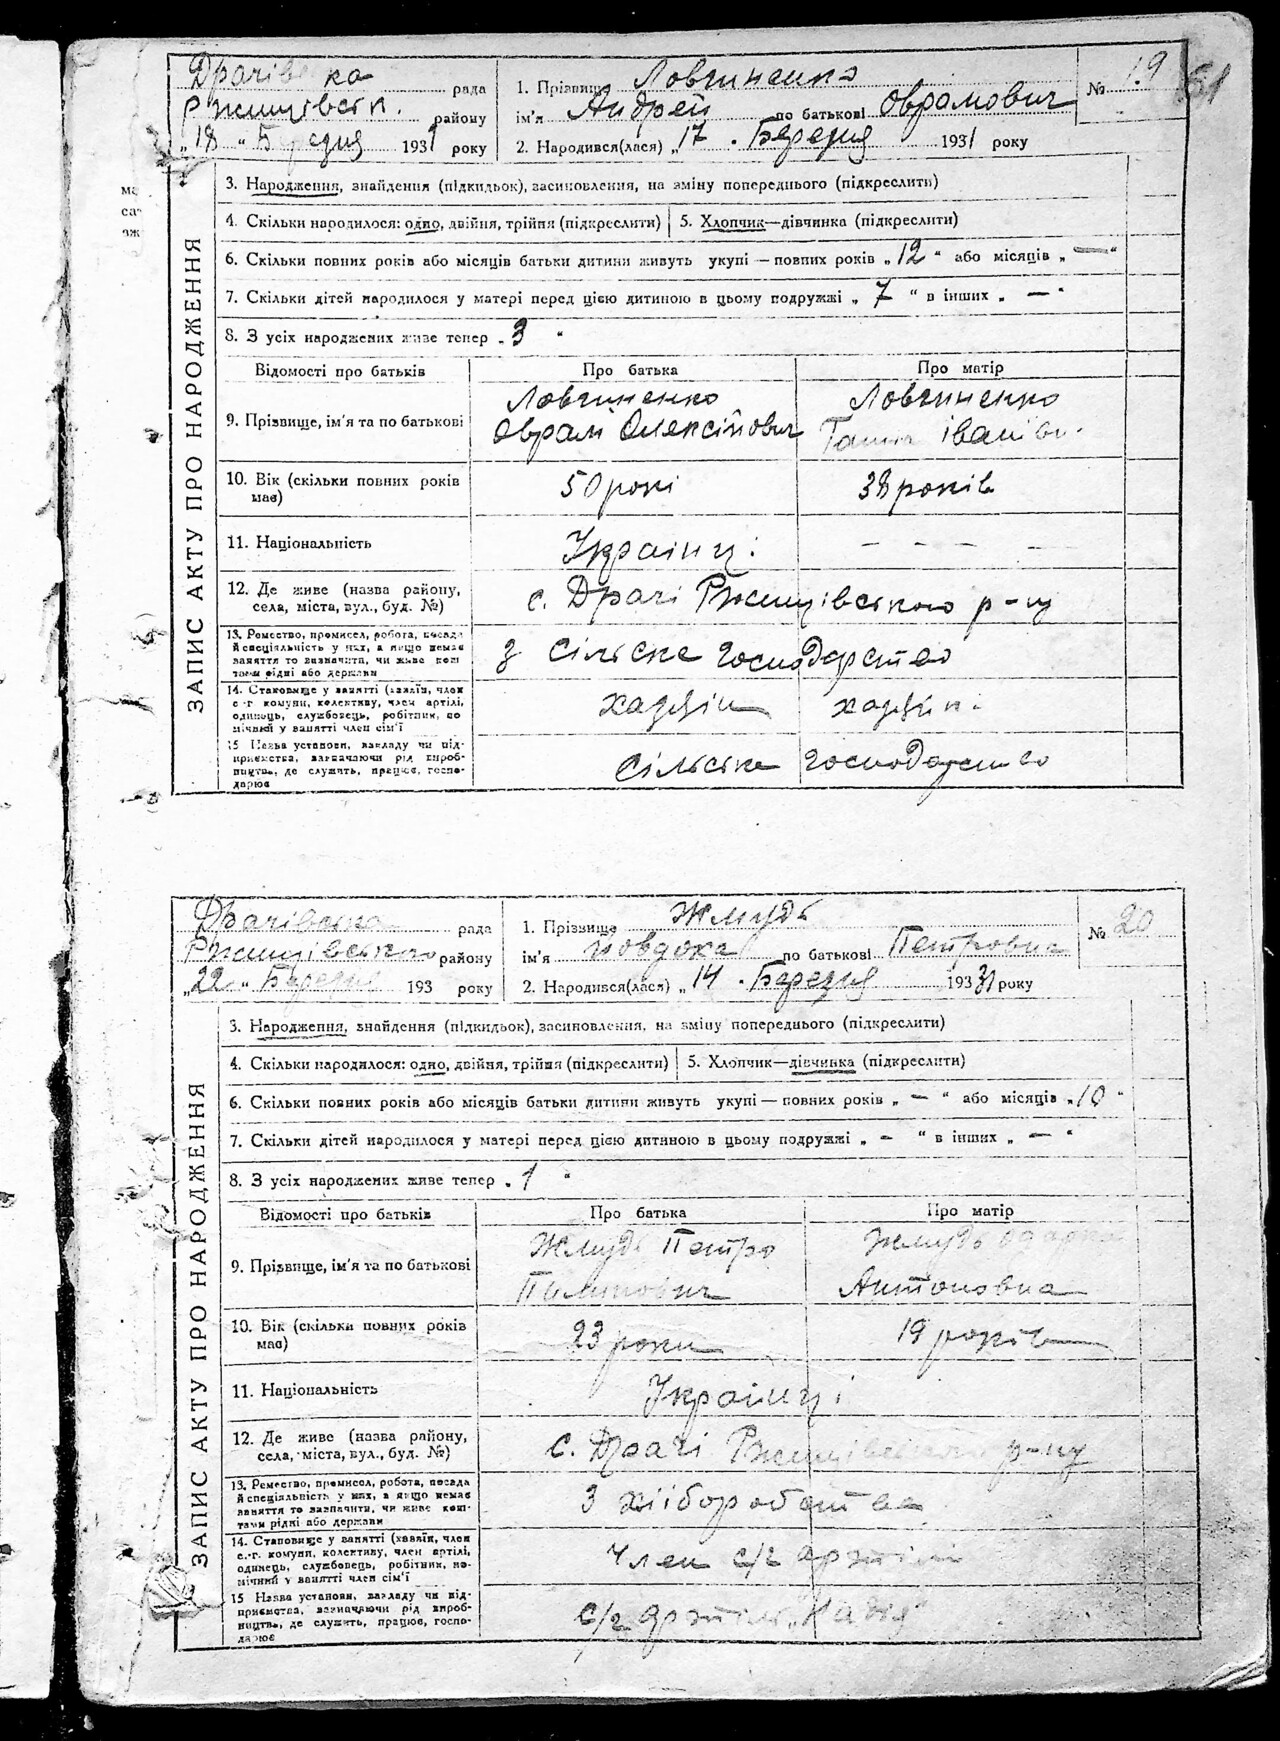 Драчівська рада
Ржищівськ. району
„18 " Березня 1931 року
1. Прізвище Ловчиненко
ім'я Андрей по батькові Оврамович
2. Народився(лася) „17 . Березня 1931 року
№ 19
81
ЗАПИС АКТУ ПРО НАРОДЖЕННЯ
3. Народження, знайдення (підкидьок), засиновлення, на зміну попереднього (підкреслити)
4. Скільки народилося: одно, двійня, трійня (підкреслити) 5. Хлопчик—дівчинка (підкреслити)
6. Скільки повних років або місяців батьки дитини живуть укупі — повних років „ 12 " або місяців „ — "
7. Скільки дітей народилося у матері перед цією дитиною в цьому подружжі „ 7 " в інших „ — "
8. З усіх народжених живе тепер „ 3 "
Відомості про батьків Про батька Про матір
9. Прізвище, ім'я та по батькові Ловчиненко Оврам Олексійович Ловчиненко Ганна Іванівн.
10. Вік (скільки повних років має) 50 рокі 38 років
11. Національність Українці — — —
12. Де живе (назва району, села, міста, вул., буд. №) с. Драчі Ржищівського р-ну
13. Ремество, промисел, робота, посада й спеціяльність у них, а якщо немає заняття то зазначити, чи живе коштами рідні або держави З сільске господарство
14. Становище у занятті (хазяїн, член с.-г. комуни, колективу, член артілі, одинець, службовець, робітник, помічний у занятті член сім'ї хазяїн хазяїн.
15 Назва установи, закладу чи підприємства, зазначаючи рід виробництва, де служить, працює, господарює Сільське господарство
Драчівська рада
Ржищівського району
„22 " Березня 193 року
1. Прізвище Жмудь
ім'я Йовдоха по батькові Петровна
2. Народився(лася) „14 . Березня 1931 року
№ 20
ЗАПИС АКТУ ПРО НАРОДЖЕННЯ
3. Народження, знайдення (підкидьок), засиновлення, на зміну попереднього (підкреслити)
4. Скільки народилося: одно, двійня, трійня (підкреслити) 5. Хлопчик—дівчинка (підкреслити)
6. Скільки повних років або місяців батьки дитини живуть укупі — повних років „ — " або місяців „ 10 "
7. Скільки дітей народилося у матері перед цією дитиною в цьому подружжі „ — " в інших „ — "
8. З усіх народжених живе тепер „ 1 "
Відомості про батьків Про батька Про матір
9. Прізвище, ім'я та по батькові Жмудь Петро Пилипович Жмудь Антоновна
10. Вік (скільки повних років має) 23 роки 19 років
11. Національність Українці
12. Де живе (назва району, села, міста, вул., буд. №) с. Драчі Ржищівського р-ну
13. Ремество, промисел, робота, посада й спеціяльність у них, а якщо немає заняття то зазначити, чи живе коштами рідні або держави З хліборобства
14. Становище у занятті (хазяїн, член с.-г. комуни, колективу, член артілі, одинець, службовець, робітник, помічний у занятті член сім'ї Член с/г артілі
15 Назва установи, закладу чи підприємства, зазначаючи рід виробництва, де служить, працює, господарює с/г артіль